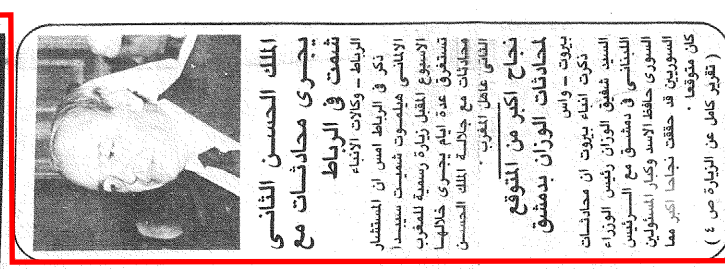 الملك الحسن الثاني
يجرى محادثات مع
شمت في الرباط
الرباط - وكالات الانباء
ذكر في الرباط امس ان المستشار
الالماني هيلموت شميت سيبدأ
الاسبوع المقبل زيارة رسمية للمغرب
تستغرق عدة ايام يجرى خلالها
محادثات مع جلالة الملك الحسن
الثاني عاهل المغرب .
نجاح اكبر من المتوقع
لمحادثات الوزان بدمشق
بيروت - واس
ذكرت انباء بيروت ان محادثات
السيد شفيق الوزان رئيس الوزراء
اللبناني في دمشق مع الرئيس
السورى حافظ الاسد وكبار المسئولين
السوريين قد حققت نجاحا اكبر مما
كان متوقعا .
( تقرير كامل عن الزيارة ص ٤ )